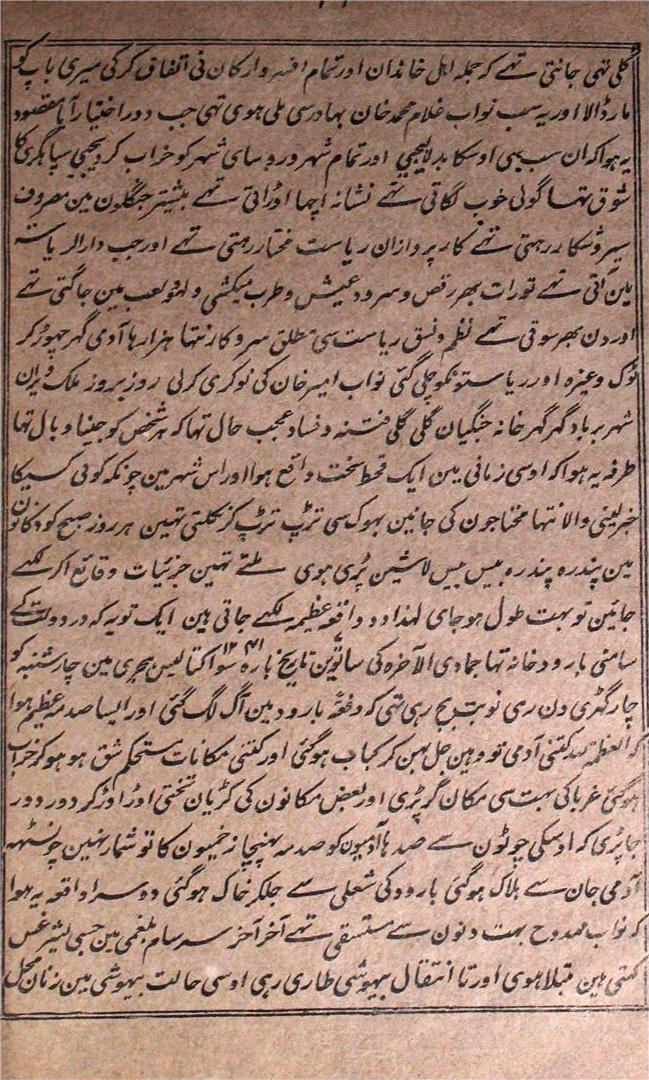 کلی نہی جانتی تہے کہ جملہ اہل خاندان اور تمام افسر و ارکان نی اتفاق کر کی میری باپ کو
مار ڈالا اور یہ سب نواب غلام محمد خان بہادر سی ملی ہوی تہی جب دور اختیار آیا مقصود
یہ ہوا کہ ان سب سی اوسکا بدلا لیجیی اور تمام شہر و روسای شہر کو خراب کر دیجیی سپاہگری کا
شوق تہا گولی خوب لگاتی تہے نشانہ اچہا اوڑاتی تہے بیشتر جنگلون مین مصروف
سیر و شکار رہتی تہے کار پردازان ریاست مختار رہتی تہے اور جب دار الریاستہ
مین آتی تہے تو رات بہر رقص و سرود عیش و طرب میکشی و لہو لعب مین جاگتی تہے
اور دن بہر سوتی تہے نظم و نسق ریاست سی مطلق سروکار نتہا ہزارہا آدمی گہر چہوڑ کر
ٹونک وغیرہ اور ریاستونکو چلی گئی نواب امیر خان کی نوکری کرلی روز بروز ملک ویران
شہر برباد گہر گہر خانہ جنگیان گلی گلی فتنہ و فساد عجب حال تہا کہ ہر شخص کو جینا وبال تہا
طرفہ یہ ہوا کہ اوسی زمانی مین ایک قحط سخت واقع ہوا اور اس شہر مین چونکہ کوئی کسیکا
خبر لینی والا نتہا محتاجون کی جانین بہوک سی تڑپ تڑپ کر نکلتی تہین ہر روز صبح کو دکانون
مین پندرہ پندرہ بیس بیس لاشین پڑی ہوی ملتے تہین جزئیات وقائع اگر لکہے
جائین تو بہت طول ہو جای لہذا دو واقعہ عظیمہ لکہے جاتی ہین ایک تو یہ کہ در دولت کے
سامنی بارود خانہ تہا جمادی الآخرہ کی ساتوین تاریخ بارہ سو اکتالیس ۱۲۴۱ ہجری مین چارشنبہ کو
چار گہڑی دن رہی نوبت بج رہی تہی کہ دفعۃً بارود مین آگ لگ گئی اور ایسا صدمہ عظیم ہوا
کہ العظمۃ للہ کتنی آدمی تو وہین جل بہن کر کباب ہو گئی اور کتنی مکانات مستحکم شق ہو ہو کر خراب
ہو گئی غربا کی بہت سی مکان گر پڑی اور بعض مکانون کی کڑیان تختی اوڑ اوڑ کر دور دور
جا پڑی کہ اوسکی چوٹون سے صدہا آدمیون کو صدمہ پہنچا زخمیون کا تو شمار نہین چونسٹہہ
آدمی جان سے ہلاک ہو گئی بارود کی شعلی سے جلکر خاک ہو گئی دوسرا واقعہ یہ ہوا
کہ نواب ممدوح بہت دنون سے مستسقی تہے آخر آخر سرسام بلغمی مین جسی لیثرغس
کہتی ہین مبتلا ہوی اور تا انتقال بیہوشی طاری رہی اوسی حالت بیہوشی مین زنان محل